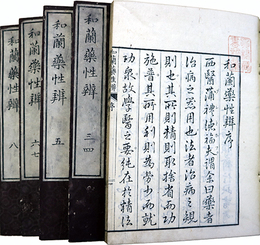 和蘭藥性辨序
西醫蒲禮讀福夫謂余曰藥者
治病之器用也法者治病之規
則也其則精則取捨省而功
施普其所用利則為勞少而就
功衆故學醫之要純在於精法
和蘭藥性辨
和蘭藥性辨 三四
和蘭藥性辨 五
和蘭藥性辨 六七
和蘭藥性辨 八